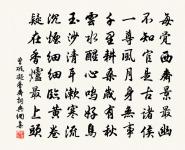 每覺西齋景最幽
不知官是古諸侯
一尊風月身無事
千里耕桑歲有秋
雲水醒心鳴好鳥
玉沙清耳漱寒流
沉煙細細臨黃卷
疑在香爐最上頭
曾鞏凝香齋詩典網